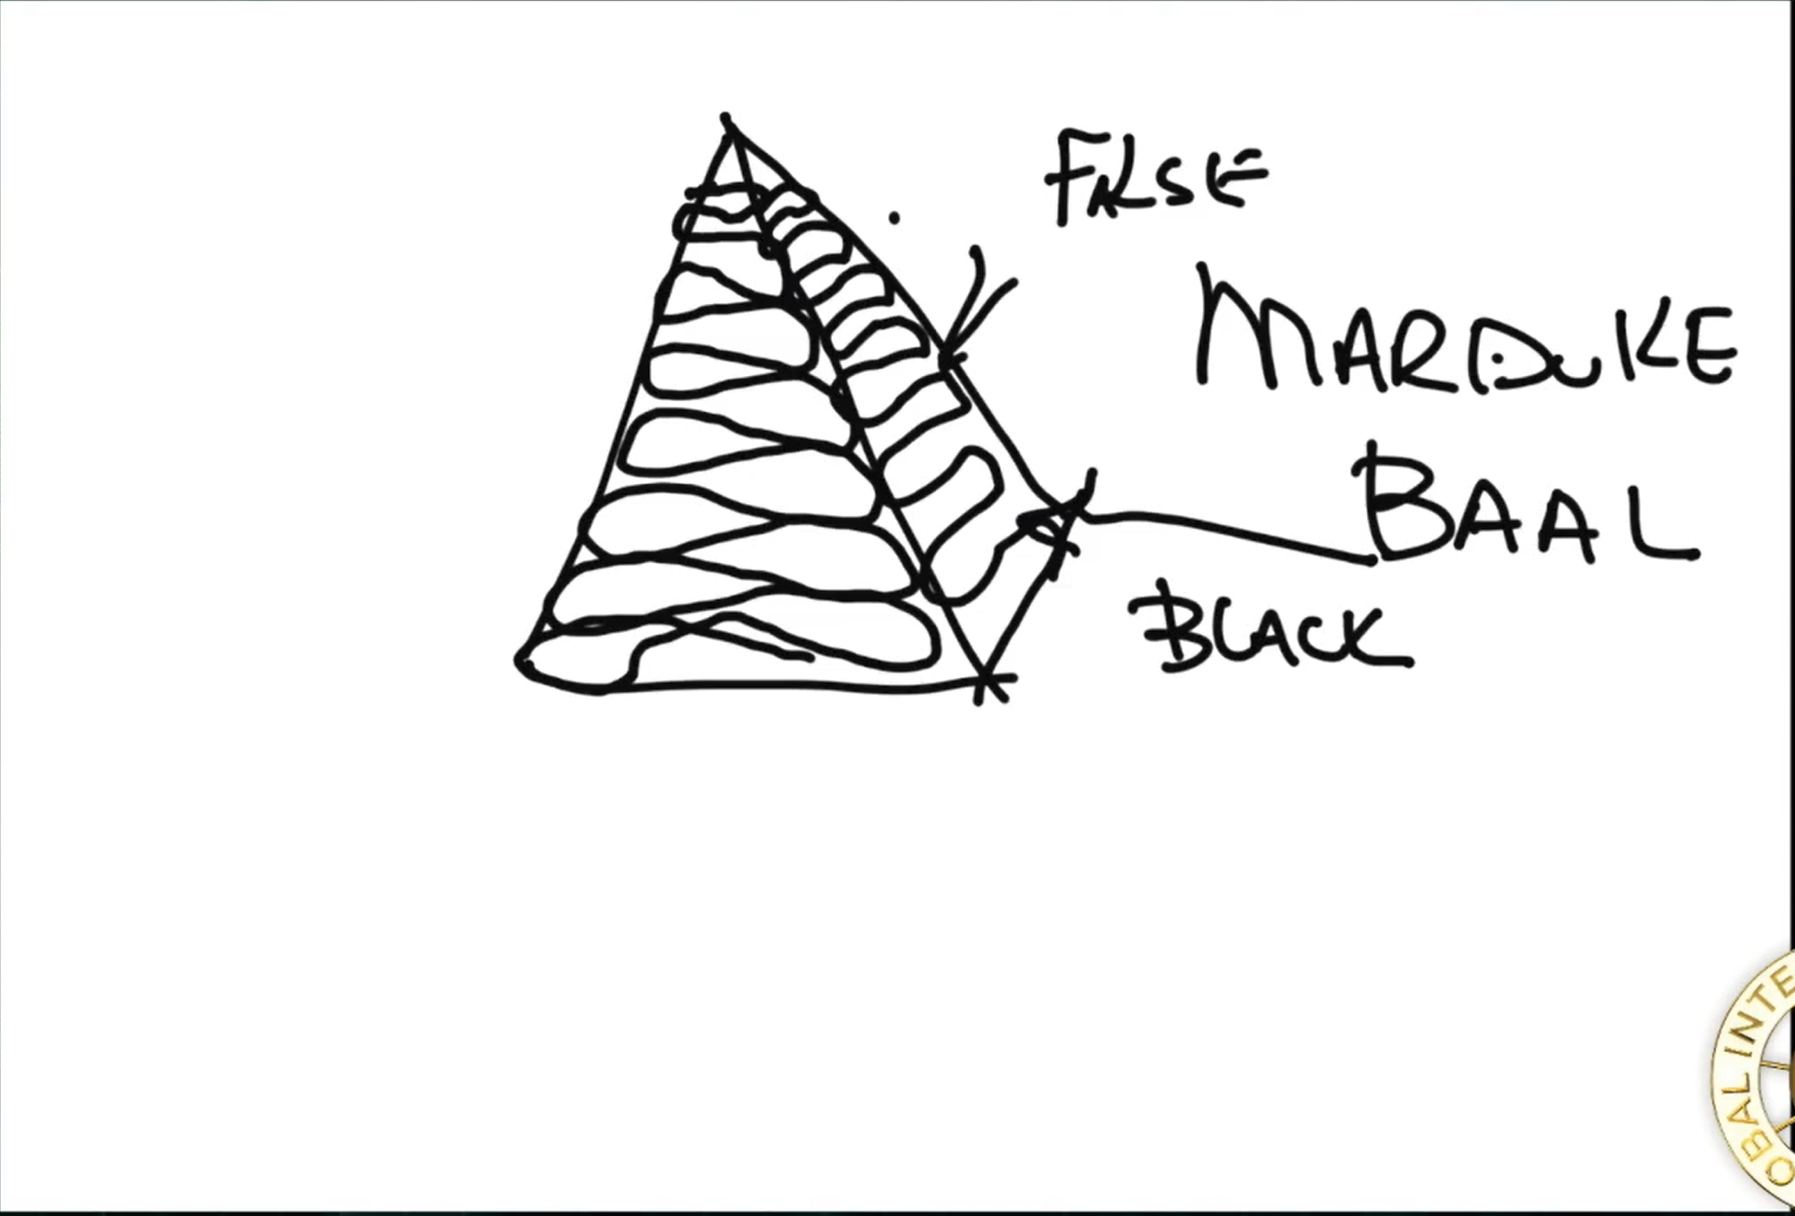 FALSE
MARDUKE
BAAL
BLACK
OBAL INTE